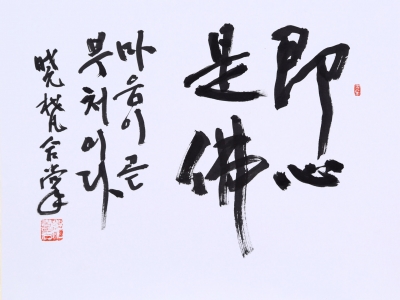 即心
是佛
마음이 곧
부처이다
曉梵合掌